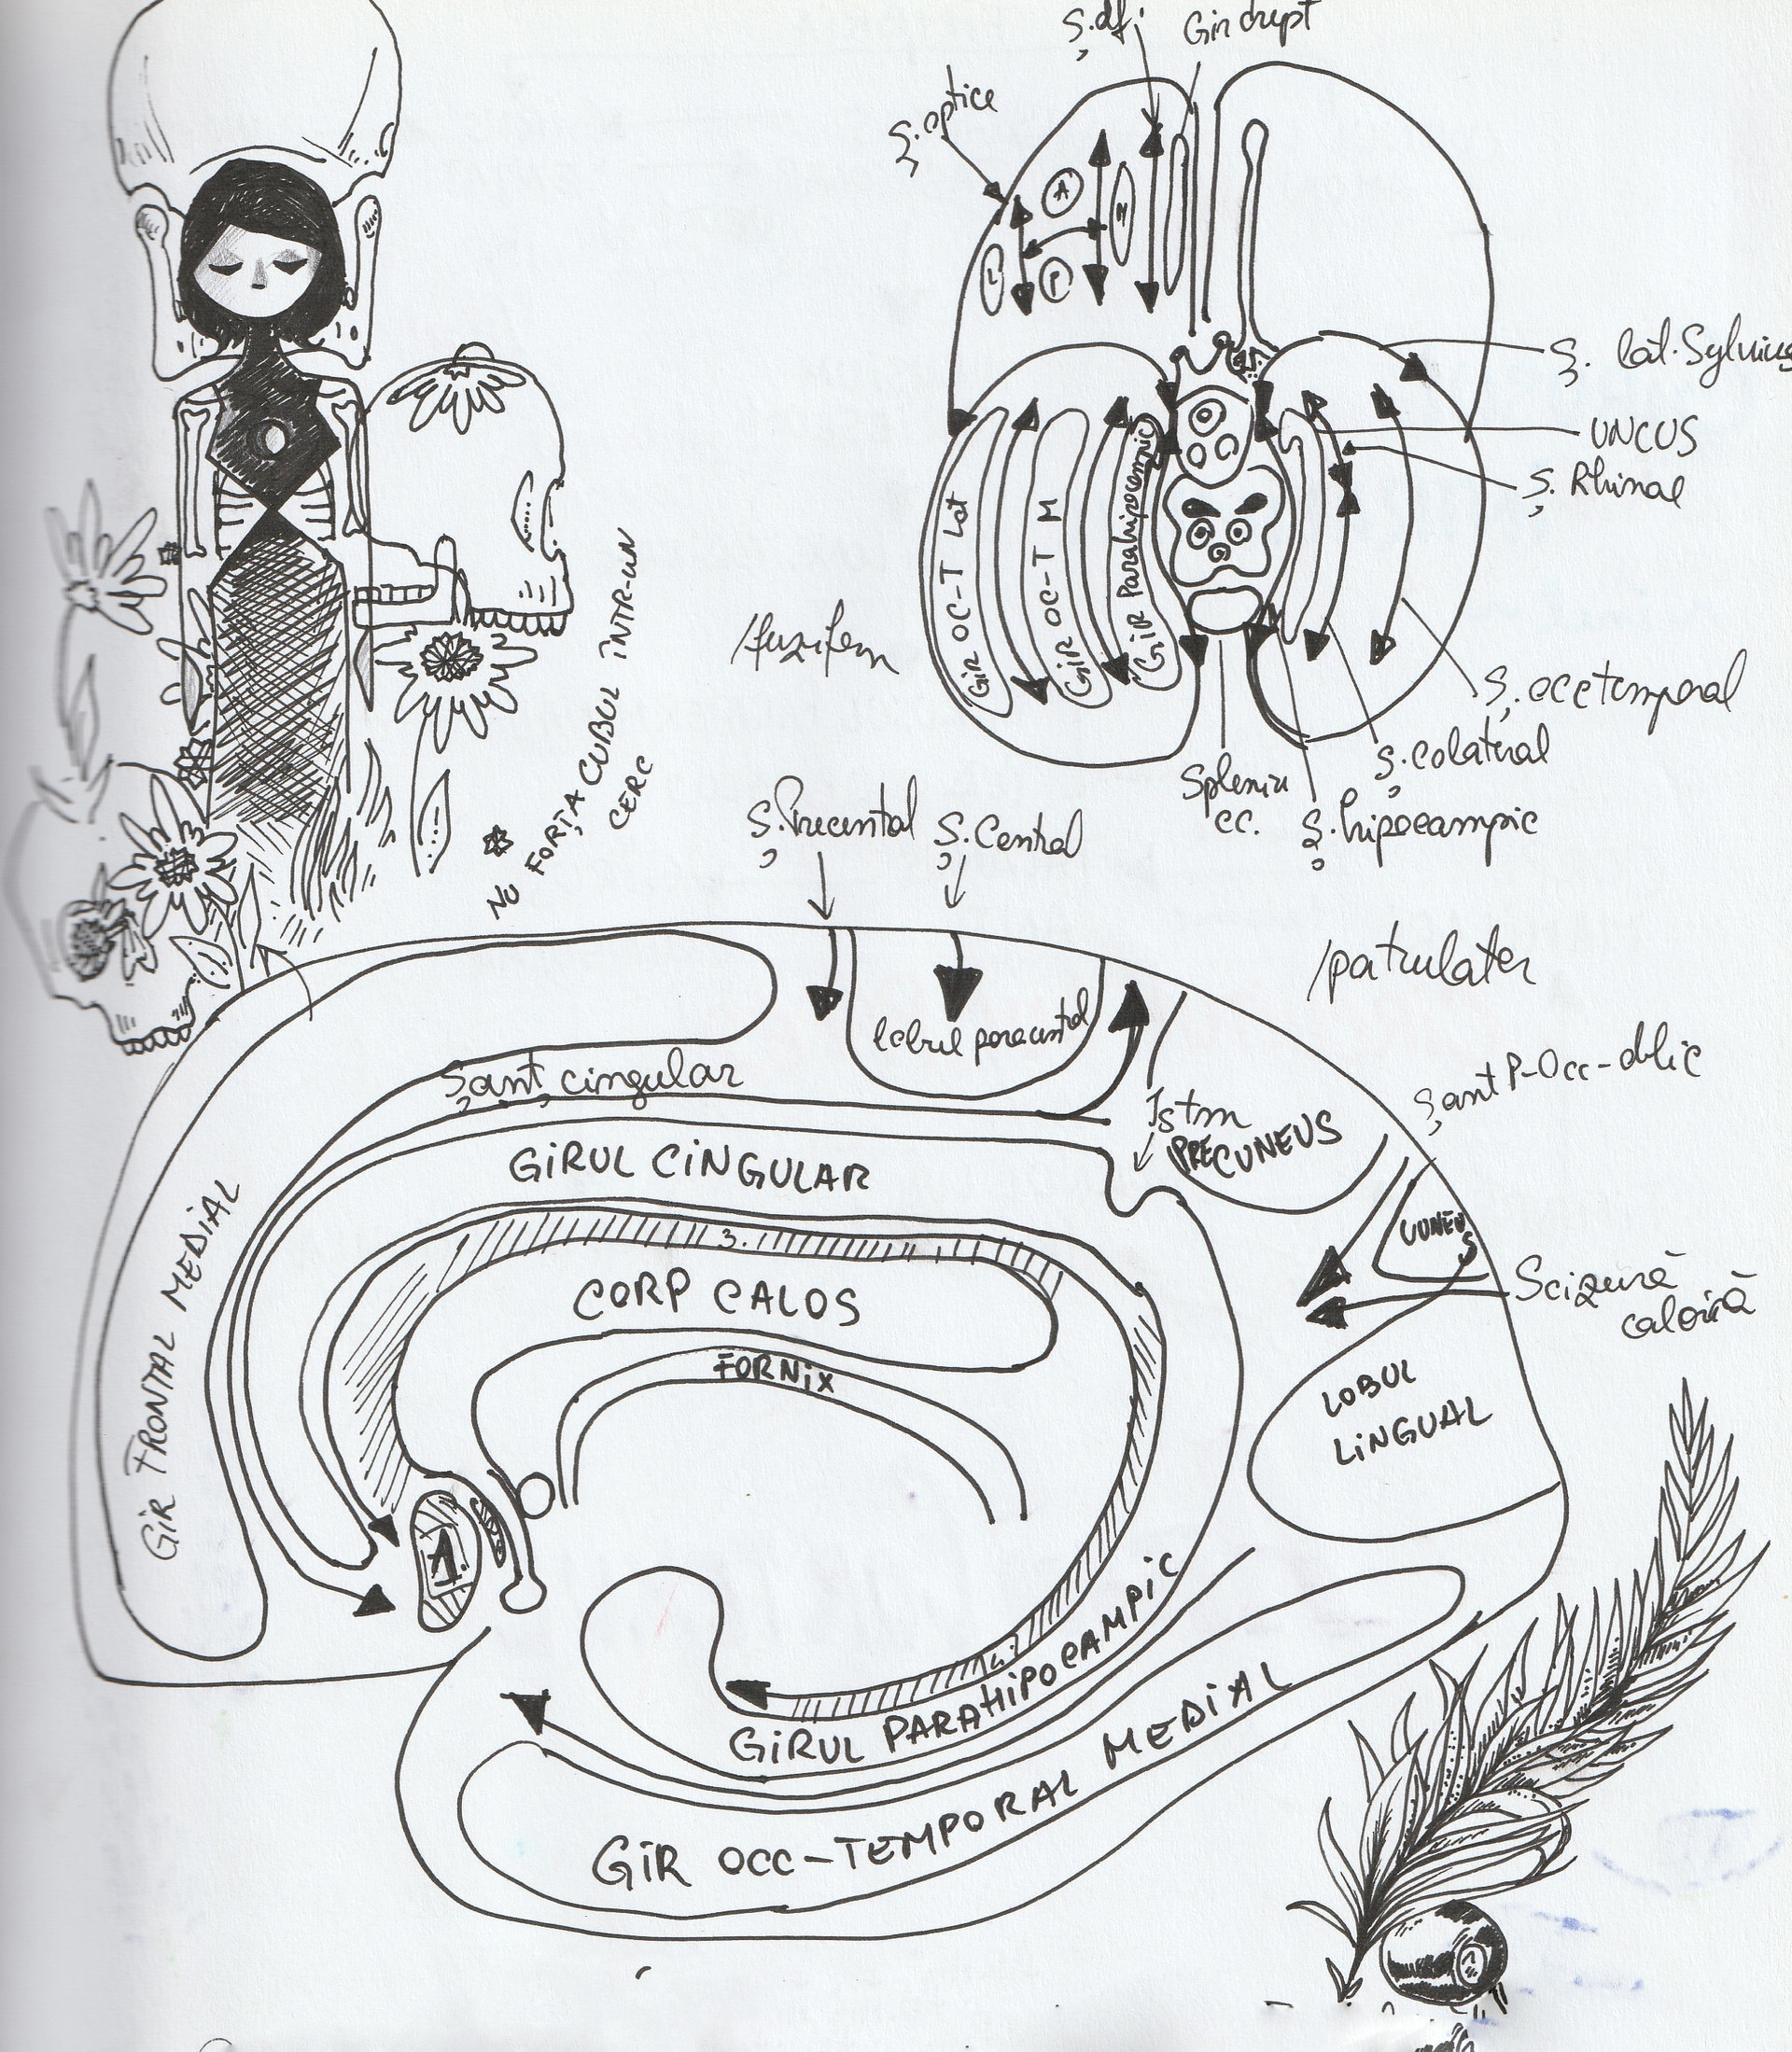 Ș. olf.
Gir drept
Ș. optice
A
M
L
P
Ș. lat. Sylvius
UNCUS
Ș. Rhinal
GiR OC-T Lat
GiR OC-T M
GiR Parahipocampic
/fuziform
Ș. occ temporal
Ș. colateral
Spleniu
cc.
Ș. hipocampic
* NU FORȚA CUBUL ÎNTR-UN
CERC
Ș. Precentral
Ș. Central
/patrulater
lobul paracentral
Șanț cingular
Șant P-Occ-
Istm
PRECUNEUS
GiRUL CiNGULAR
CUNEUS
GiR FRONTAL MEDIAL
3.
CORP CALOS
Scizură
FORNiX
LOBUL
LiNGUAL
1.
GiRUL PARAHiPOCAMPiC
GiR OCC-TEMPORAL MEDiAL